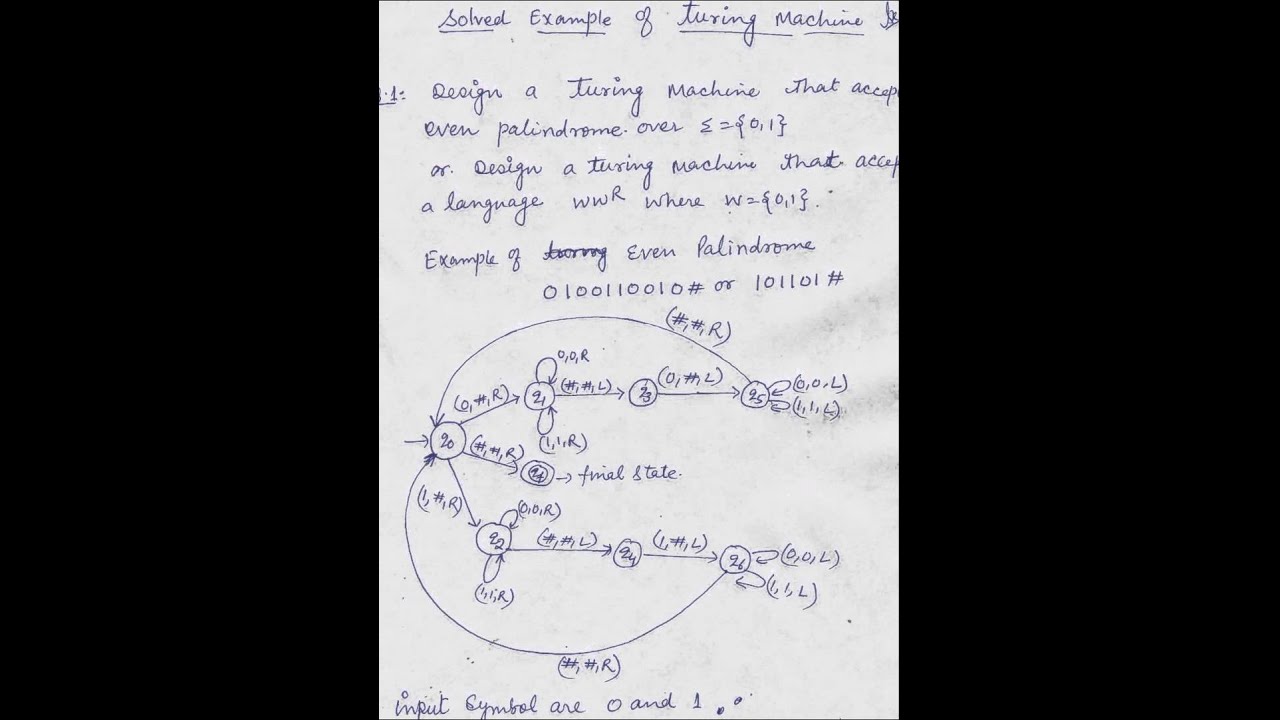 Solved Example of Turing Machine
.1: Design a Turing Machine that accep
even palindrome. over Σ={0,1}
or. Design a turing machine that accep
a language wwR where w={0,1}.
Example of turing Even Palindrome
0100110010# or 101101#
(#,#,R)
0,0,R
(0,#,R) q1 (#,#,L) q3 (0,#,L) q5 (0,0,L)
(1,1,L)
(1,1,R)
q0 (#,#,R) → final state.
(1,#,R)
(0,0,R)
q2 (#,#,L) q4 (1,#,L) q6 (0,0,L)
(1,1,R) (1,1,L)
(#,#,R)
input symbol are 0 and 1